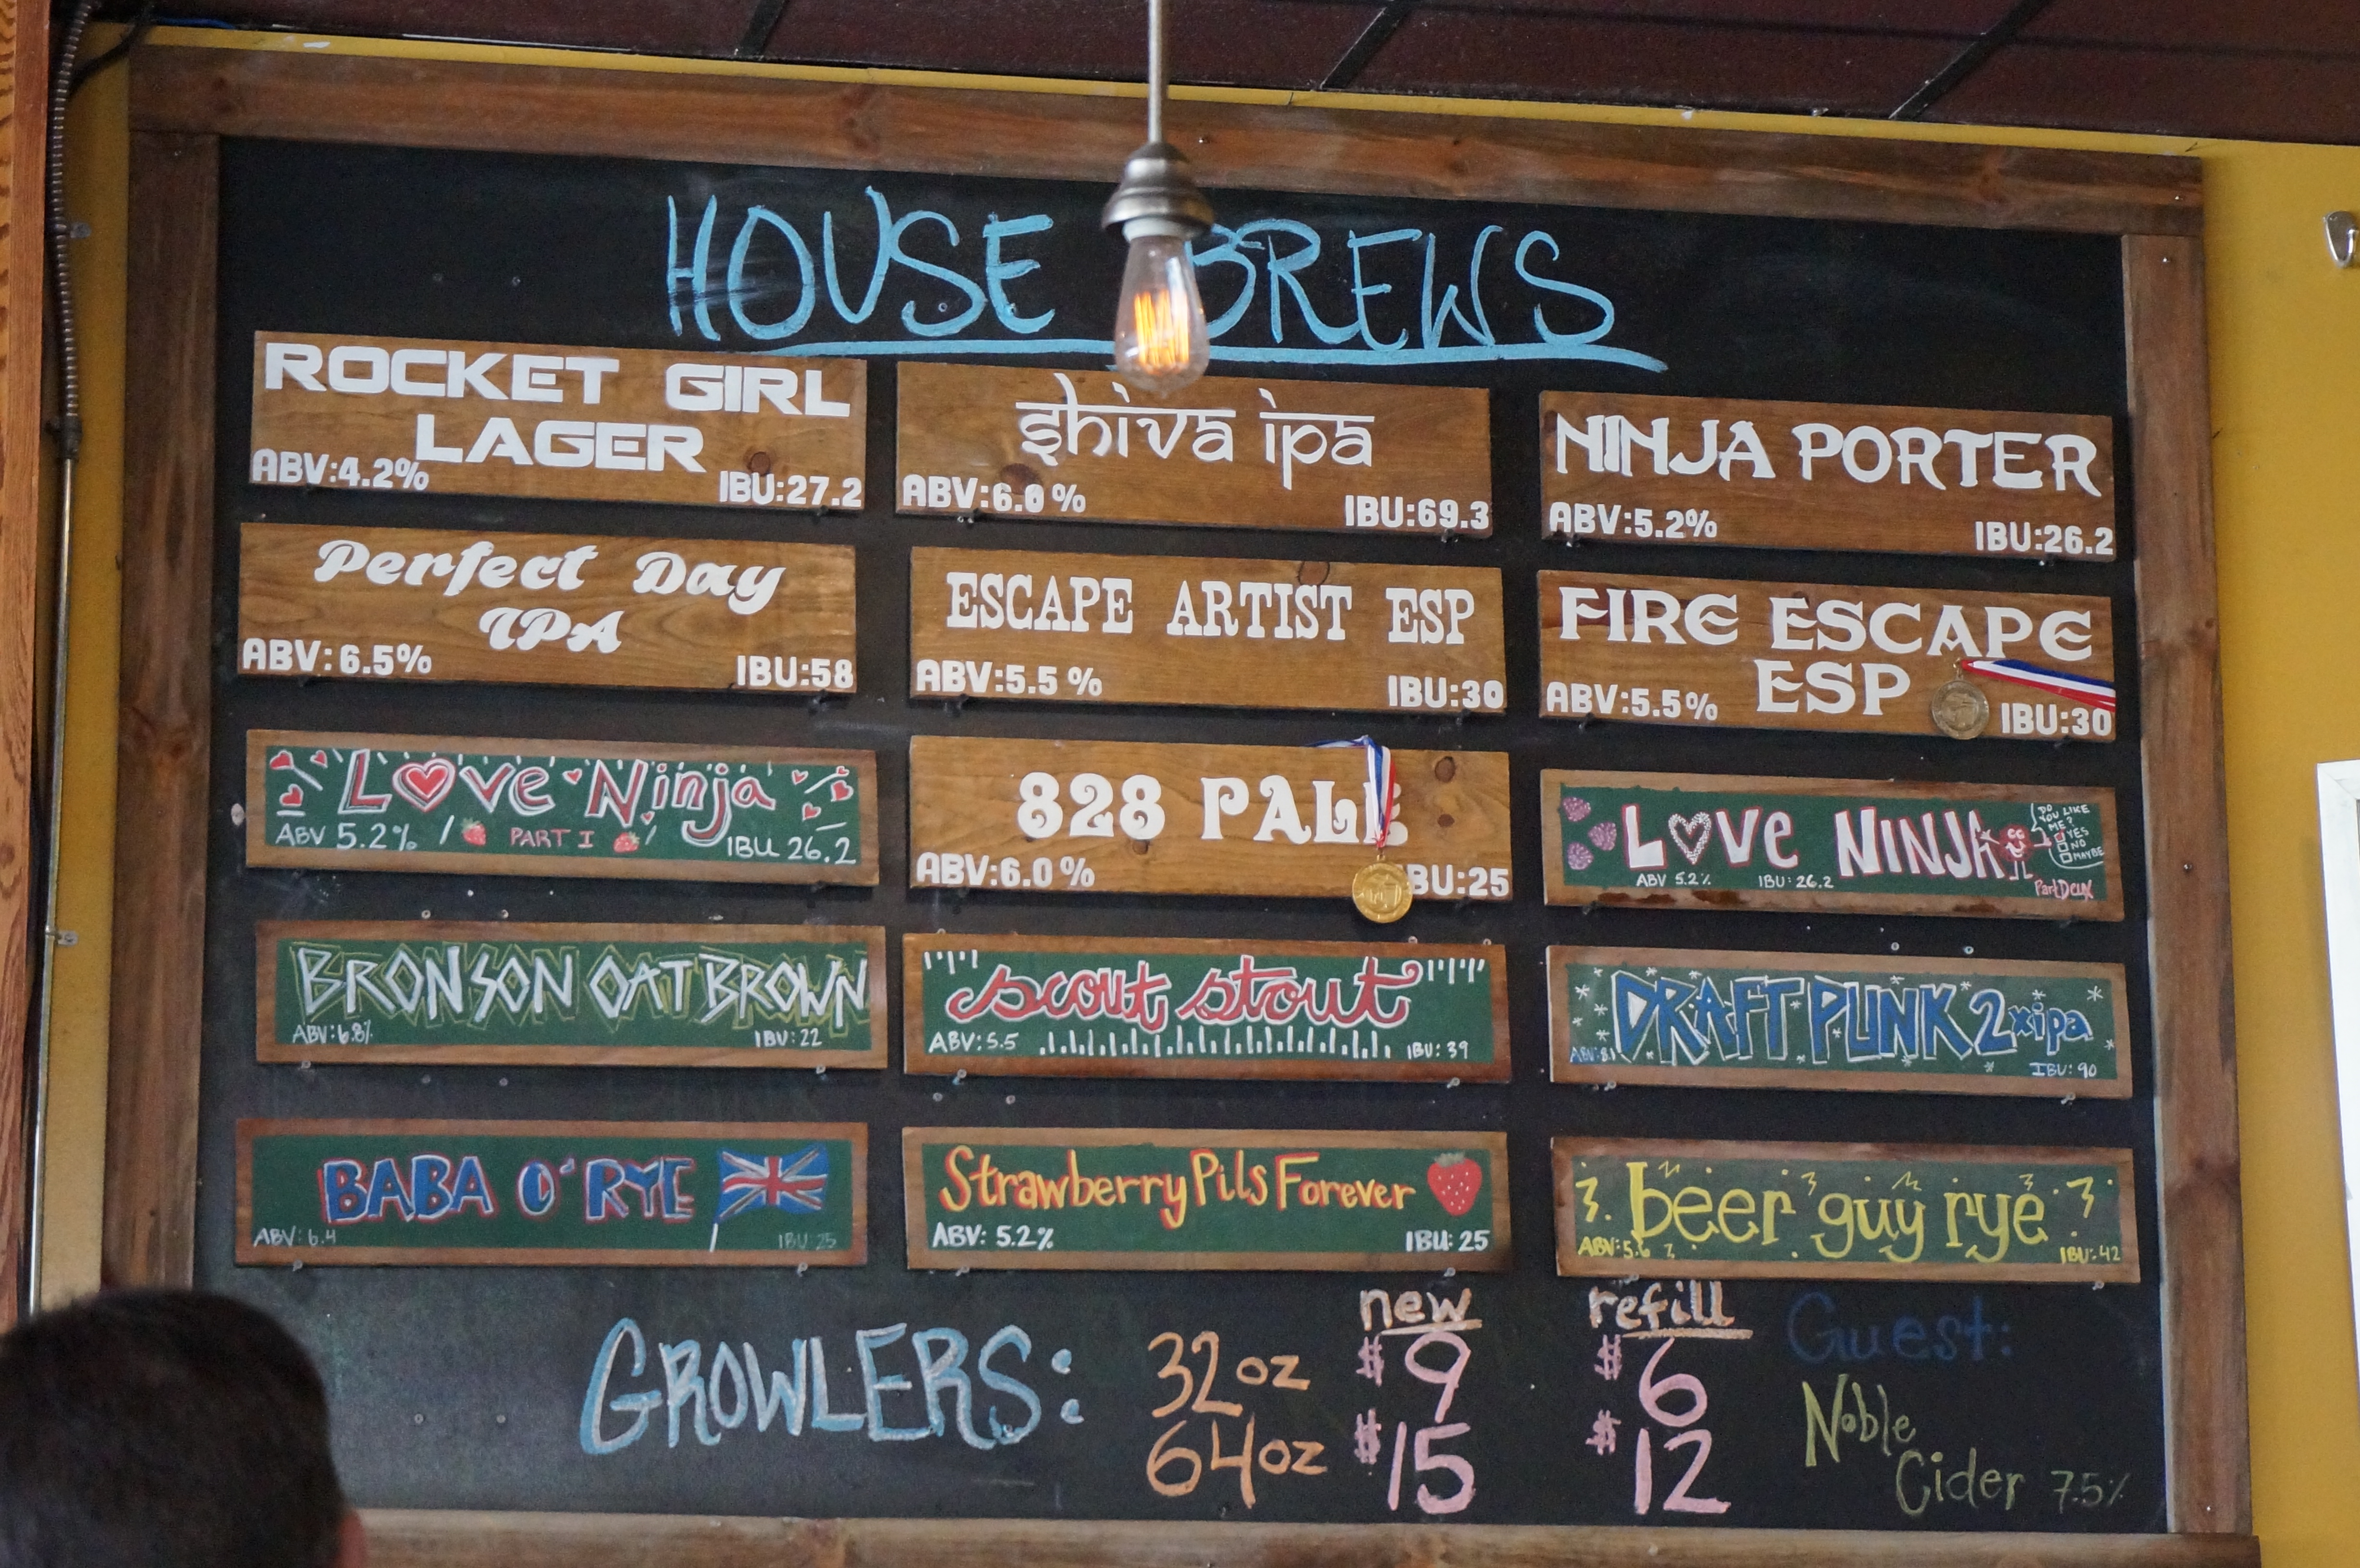 HOUSE BREWS
ROCKET GIRL
LAGER
ABV:4.2% IBU:27.2
shiva ipa
ABV:6.0% IBU:69.3
NINJA PORTER
ABV:5.2% IBU:26.2
Perfect Day
IPA
ABV:6.5% IBU:58
ESCAPE ARTIST ESP
ABV:5.5% IBU:30
FIRE ESCAPE
ESP
ABV:5.5% IBU:30
Love Ninja
ABV 5.2% PART I IBU 26.2
828 PALE
ABV:6.0% BU:25
LOVe NINJA
DO
YOU LIKE
ME?
YES
NO
MAYBE
ABV 5.2% IBU: 26.2
Part DeuX
BRONSON OAT BROWN
ABV:6.8% IBU:22
scout stout
ABV:5.5 IBU:39
DRAFT PUNK 2xipa
ABV:8.1 IBU:90
BABA O'RYE
ABV:6.4 IBU:25
Strawberry Pils Forever
ABV:5.2% IBU:25
beer guy rye
ABV:5.6 IBU:42
new refill
GROWLERS: 32oz $9 $6
64oz $15 $12
Guest:
Noble
Cider 7.5%